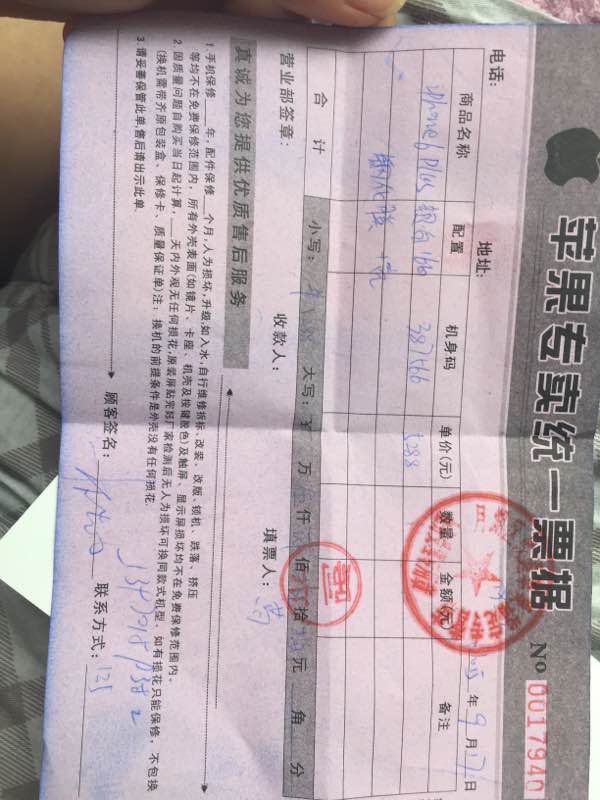 苹果专卖统一票据
№ 0017940
电话: 地址: 2015 年 9 月 17 日
商品名称 配置 机身码 单价(元) 数量 金额(元) 备注
iphone6 plus 银白 16G 387466 5288
钢化膜 一张
合计 小写: 大写: 万 仟 佰 拾 元 角 分
营业部签章: 收款人: 填票人:
真诚为您提供优质售后服务
1.手机保修 年,配件保修 个月,人为损坏,升级,如入水,自行维修拆标、改装、改版、锁机、跌落、挤压
等均不在免费保修范围内,所有外壳表面(如镜片、卡座、机壳及按键脱色)及触屏、显示屏损坏均不在免费保修范围内。
2.因质量问题自购买当日起计算, 天内外观无任何损花,原装屏贴完好厂家检测后无人为损坏可换同款式机型,如有损花只能保修,不包换
(换机需带齐原包装盒、保修卡、质量保证单)注:换机的前提条件是外壳没有任何损花.
3.请妥善保管此单,售后请出示此单.
顾客签名: 联系方式: